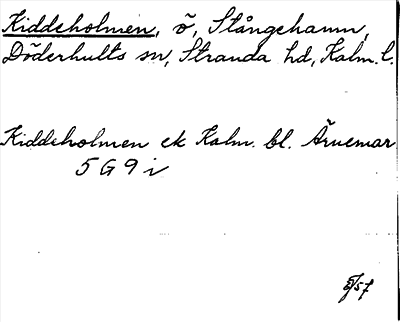 Kiddeholmen, ö, Stångehamn,
Döderhults sn, Stranda hd, Kalm. l.
Kiddeholmen ek Kalm. bl. Ärnemar
5 G 9 i